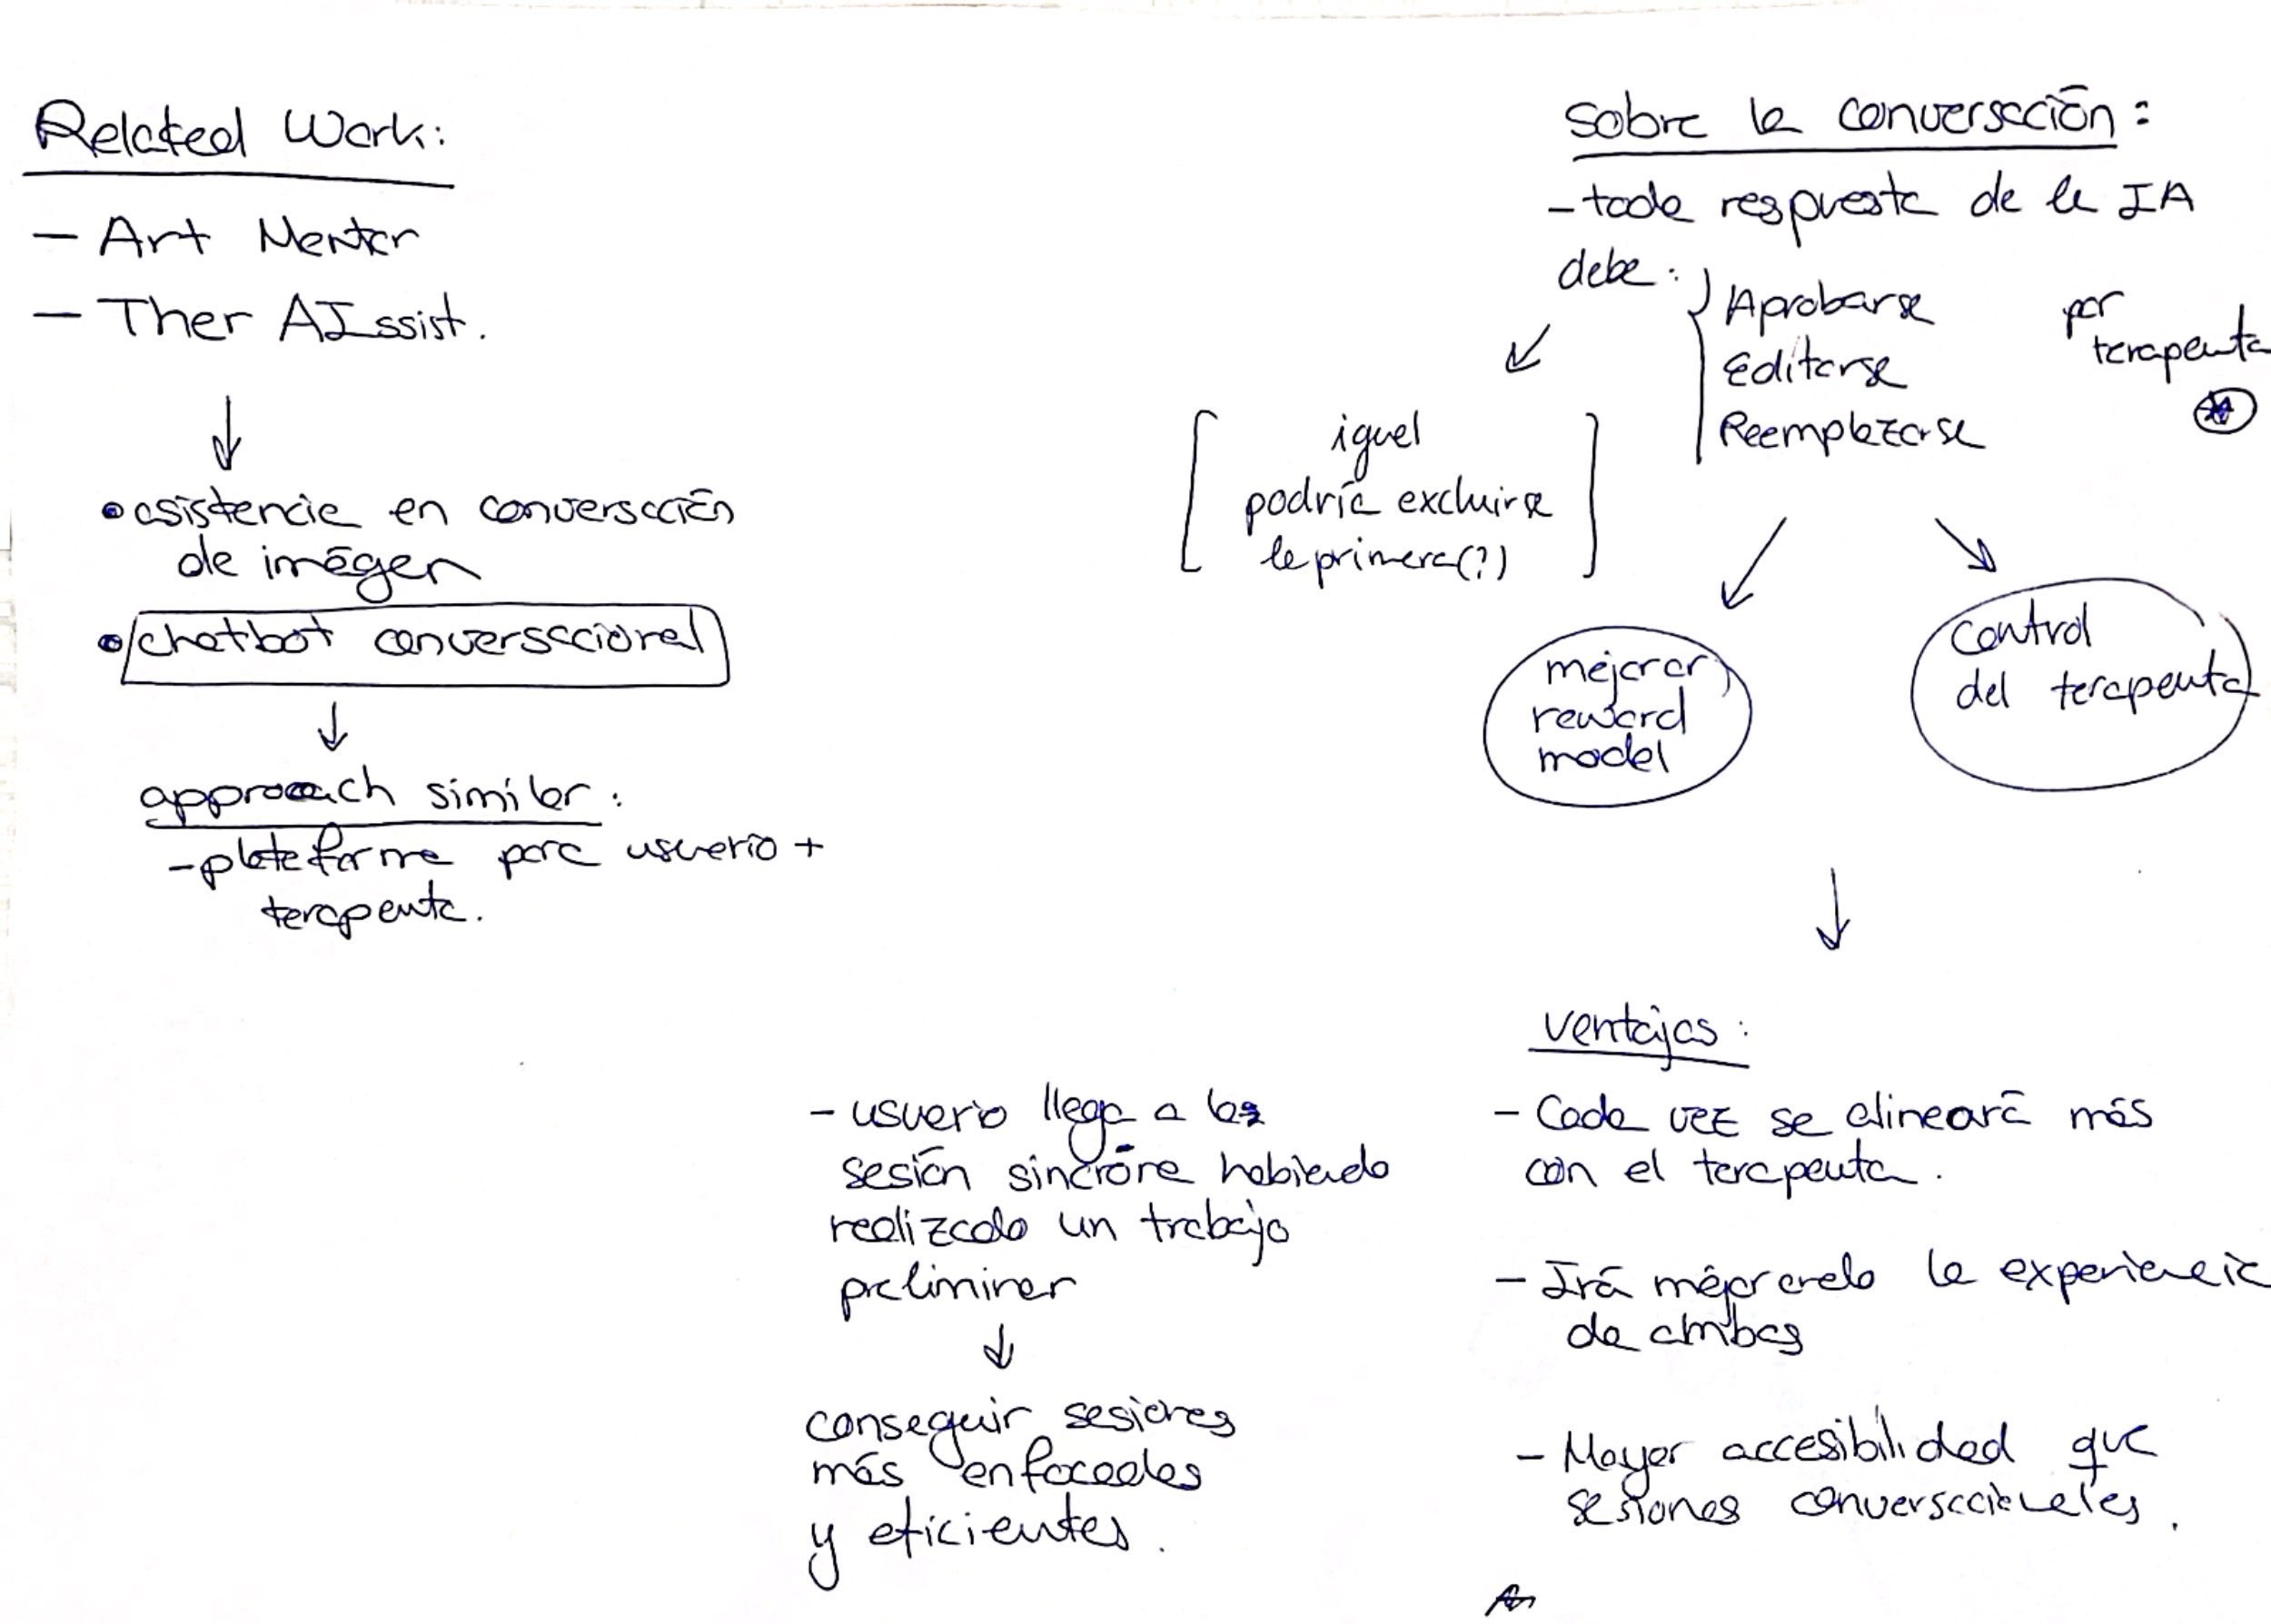 Related Work:
- Art Mentor
- Ther AIssist.
↓
• asistencia en conversación
de imágen
• chatbot conversacional
↓
approach similar:
- plataforma para usuario +
terapeuta.
Sobre la conversación:
- toda respuesta de la IA
debe:
Aprobarse
Editarse
Reemplazarse
por
terapeuta
igual
podría excluirse
la primera (?)
mejorar
reward
model
control
del terapeuta
↓
Ventajas:
- Cada vez se alineará más
con el terapeuta.
- Irá mejorando la experiencia
de ambos
- Mayor accesibilidad que
sesiones conversacionales.
- usuario llega a la
sesión sincróna habiendo
realizado un trabajo
preliminar
↓
conseguir sesiones
más enfocadas
y eficientes.